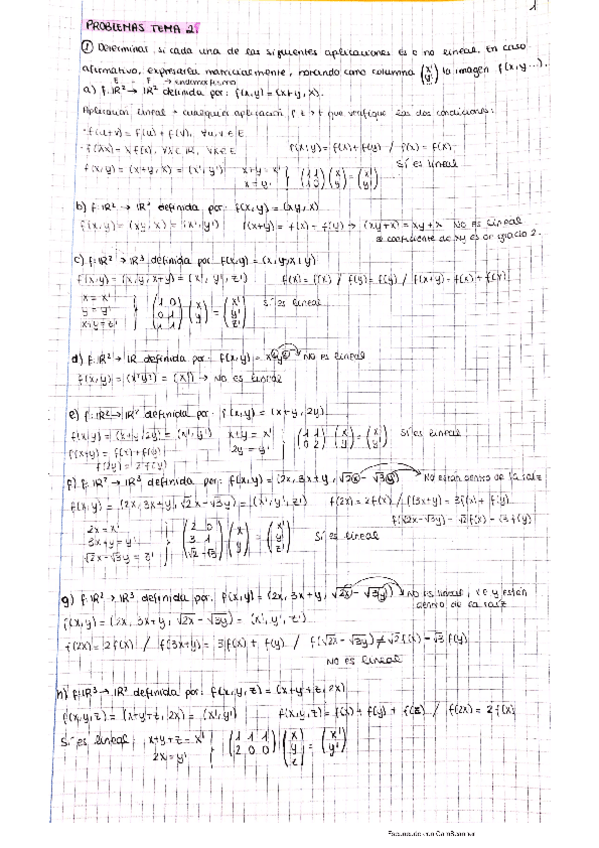 1
PROBLEMAS TEMA 2.
① Determinar si cada una de las siguientes aplicaciones es o no lineal. En caso
afirmativo, expresarla matricialmente, notando como columna (x' y') la imagen f(x,y...).
a) f: IR² → IR² definida por: f(x,y) = (x+y, x).
Aplicación lineal → cualquier aplicación f E → F que verifique las dos condiciones:
· f(u+v) = f(u) + f(v), ∀u,v ∈ E
· f(λx) = λf(x), ∀λ ∈ IR, ∀x ∈ E
f(x+y) = f(x) + f(y) / f(x) = f(x)
Sí es lineal
f(x,y) = (x+y, x) = (x', y')
x+y = x'
x = y'
(1 1 1 0) (x y) = (x' y')
b) f: IR² → IR² definida por: f(x,y) = (xy, x)
f(x,y) = (xy, x) = (x', y') f(x+y) = f(x) + f(y) → (xy+x') = xy + x No es lineal
c) f: IR² → IR³ definida por f(x,y) = (x,y,x+y)
f(x,y) = (x,y,x+y) = (x', y', z') f(x) = f(x) / f(y) = f(y) / f(x+y) = f(x) + f(y)
x = x'
y = y'
x+y = z'
(1 0 0 1 1 1) (x y) = (x' y' z') Sí es lineal
d) f: IR² → IR definida por: f(x,y) = No es lineal
f(x,y) = → No es lineal
e) f: IR² → IR² definida por: f(x,y) = (x+y, 2y)
f(x,y) = (x+y, 2y) = (x', y') x+y = x' (1 1 0 2) (x y) = (x' y') Sí es lineal
f(x+y) = f(x) + f(y) 2y = y'
f(2y) = 2f(y)
f) f: IR² → IR³ definida por: f(x,y) = (2x, 3x+y, √2x - √3y) → No están dentro de la raíz
f(x,y) = (2x, 3x+y, √2x - √3y) = (x', y', z') f(2x) = 2f(x) / f(3x+y) = 3f(x) + f(y)
f(√2x - √3y) = √2f(x) - √3f(y)
2x = x'
3x+y = y'
√2x - √3y = z'
(2 0 3 1 √2 -√3) (x y) = (x' y' z') Sí es lineal
g) f: IR² → IR³ definida por: f(x,y) = (2x, 3x+y, √2x - √3y) → No es lineal, x e y están
dentro de la raíz
f(x,y) = (2x, 3x+y, √2x - √3y) = (x', y', z')
f(2x) = 2f(x) / f(3x+y) = 3f(x) + f(y) / f(√2x - √3y) ≠ √2f(x) - √3f(y)
No es lineal
h) f: IR³ → IR² definida por: f(x,y,z) = (x+y+z, 2x)
f(x,y,z) = (x+y+z, 2x) = (x', y') f(x,y,z) = f(x) + f(y) + f(z) / f(2x) = 2f(x)
Sí es lineal; x+y+z = x'
2x = y'
(1 1 1 2 0 0) (x y z) = (x' y')
Escaneado con CamScanner